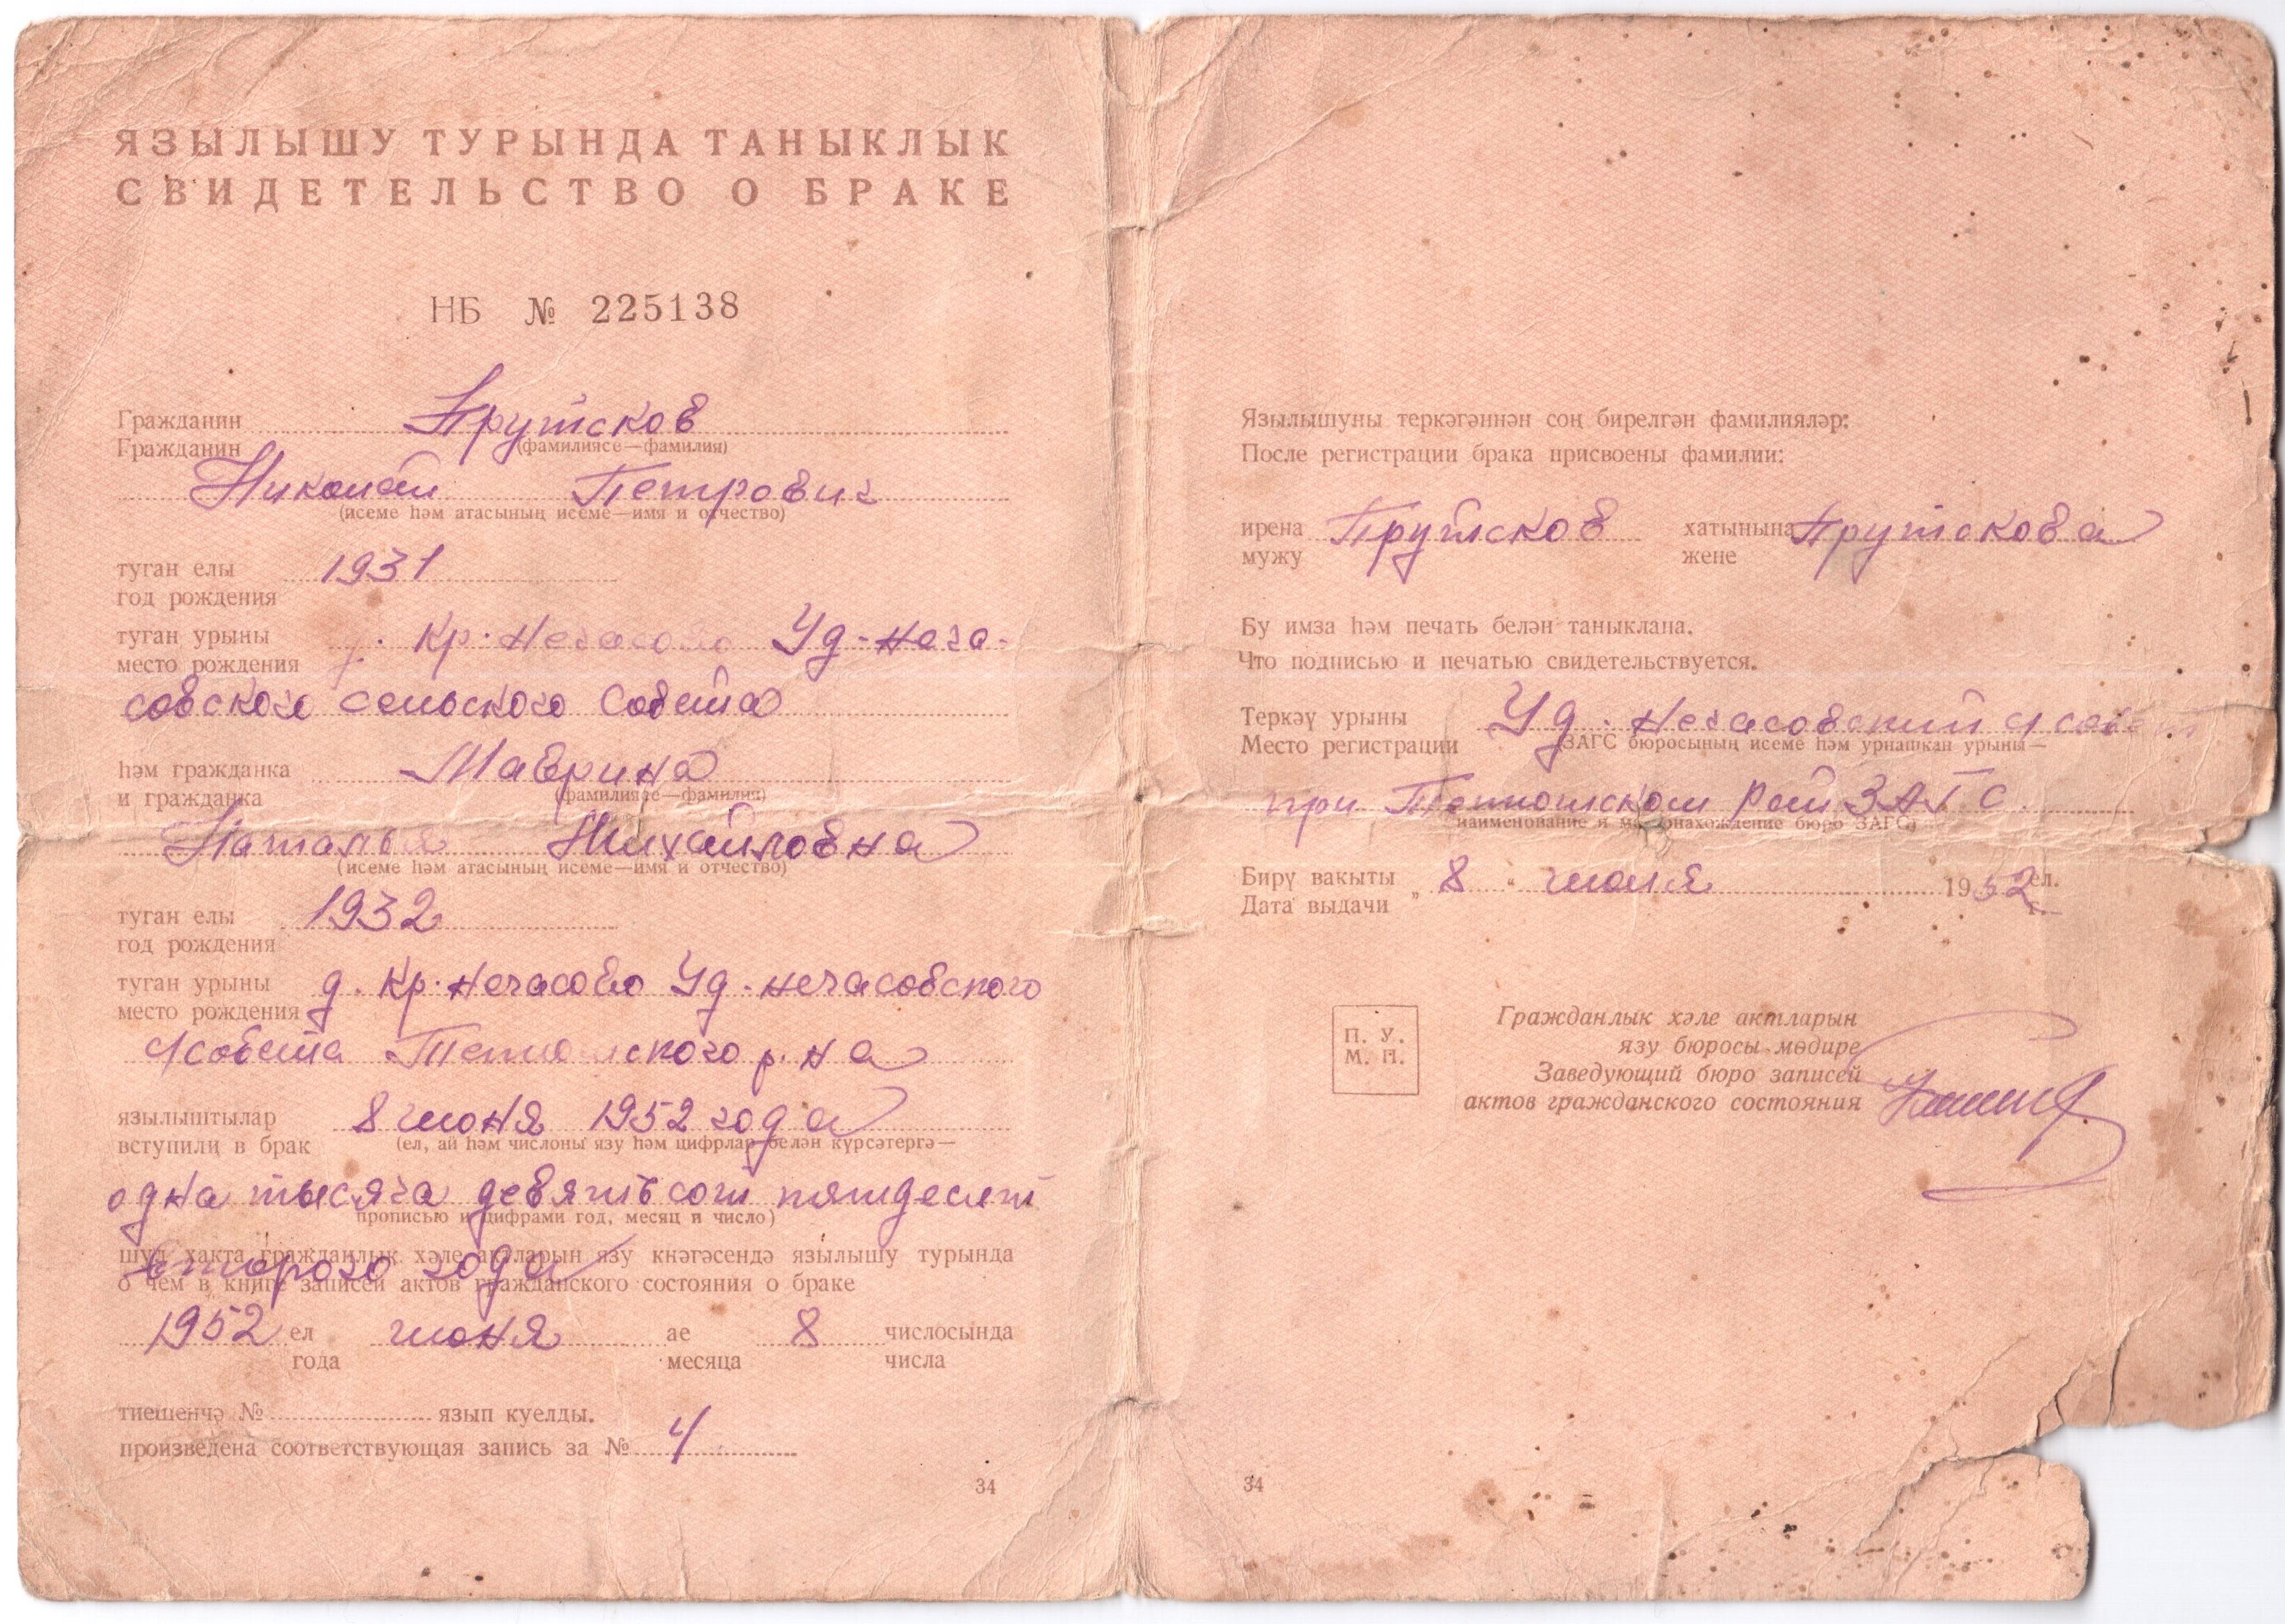 ЯЗЫЛЫШУ ТУРЫНДА ТАНЫКЛЫК
СВИДЕТЕЛЬСТВО О БРАКЕ
НБ № 225138
Гражданин Прутсков
Гражданин (фамилиясе—фамилия)
Николай Петрович
(исеме һәм атасының исеме—имя и отчество)
туган елы 1931
год рождения
туган урыны д. Кр. Нечасово Уд-неча-
место рождения
совского сельского Совета
һәм гражданка Маврина
и гражданка (фамилиясе—фамилия)
Наталья Михайловна
(исеме һәм атасының исеме—имя и отчество)
туган елы 1932
год рождения
туган урыны д. Кр. Нечасово Уд-нечасовского
место рождения
с/совета р.на
язылыштылар 8 июня 1952 года
вступили в брак (ел, ай һәм числоны язу һәм цифрлар белән күрсәтергә—
одна тысяча девятьсот пятдесят
прописью и цифрами год, месяц и число)
шул хакта гражданлык хәле актларын язу кнәгәсендә язылышу турында
второго года
о чем в книге записей актов гражданского состояния о браке
1952 ел июня ае 8 числосында
года месяца числа
тиешенчә № язып куелды.
произведена соответствующая запись за № 4
34
Язылышуны теркәгәннән соң бирелгән фамилияләр:
После регистрации брака присвоены фамилии:
ирена Прутсков хатынына Прутскова
мужу жене
Бу имза һәм печать белән таныклана.
Что подписью и печатью свидетельствуется.
Теркәү урыны Уд-нечасовский с/совет
Место регистрации ЗАГС бюросының исеме һәм урнашкан урыны—
при Рай ЗАГС.
наименование и местонахождение бюро ЗАГС)
Бирү вакыты „ 8 " июля 1952 ел.
Дата выдачи г.
П. У.
М. П.
Гражданлык хәле актларын
язу бюросы мөдире
Заведующий бюро записей
актов гражданского состояния
34